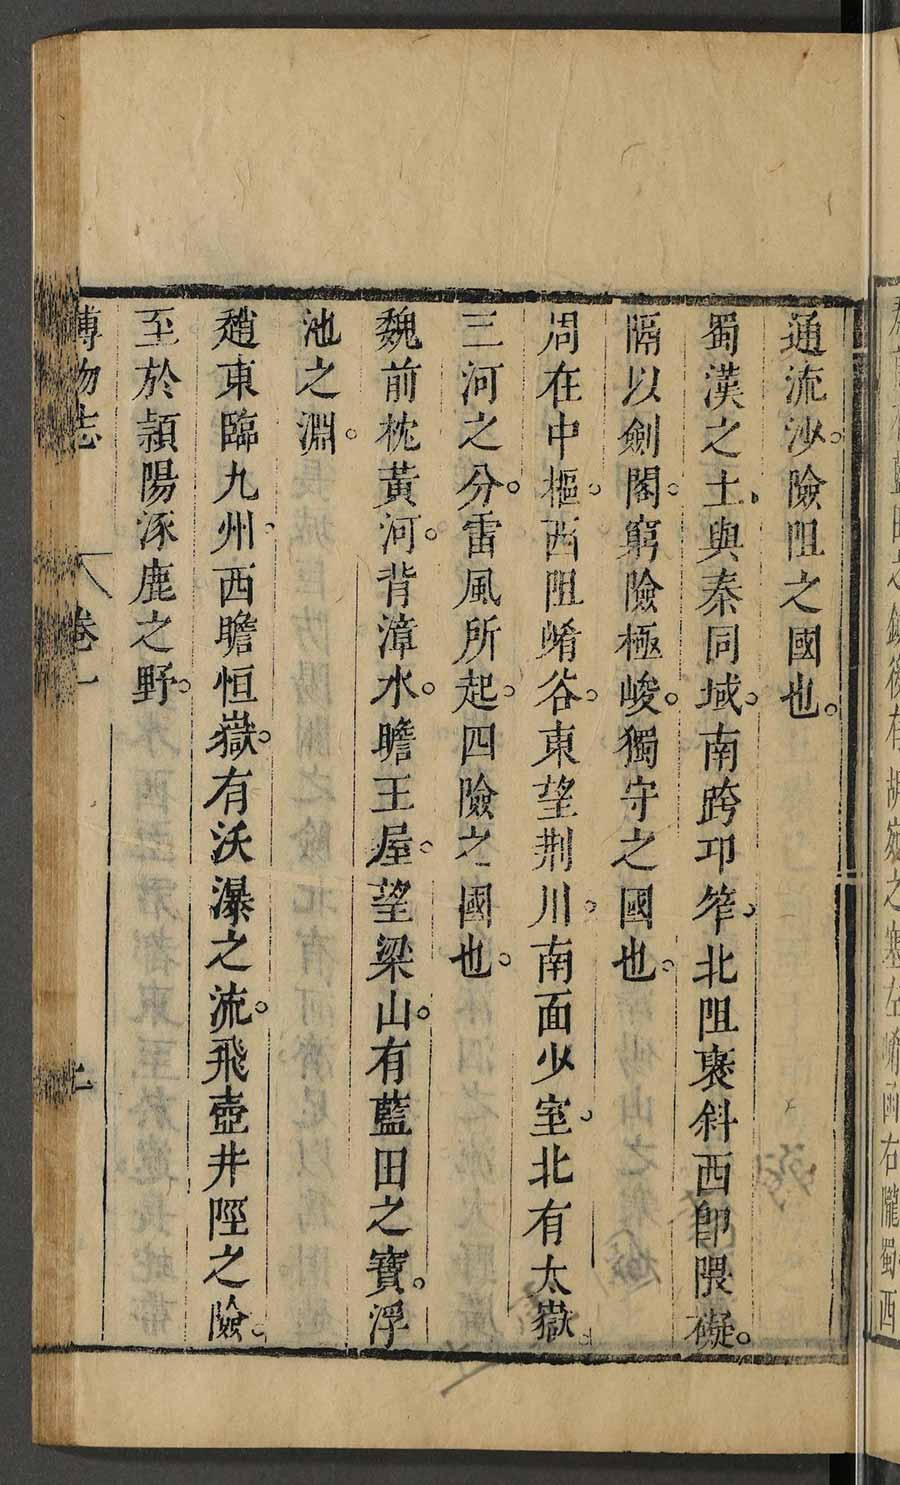 通流沙。險阻之國也。
蜀漢之土、與秦同域。南跨邛笮、北阻褒斜西卽隈礙。
隔以劍閣。窮險極峻。獨守之國也。
周在中樞。西阻崤谷。東望荆川。南面少室。北有太嶽。
三河之分。雷風所起。四險之國也。
魏前枕黃河。背漳水。瞻王屋。望梁山。有藍田之寶。浮
池之淵。
趙東臨九州、西瞻恒嶽。有沃瀑之流。飛壺井陘之險。
至於頴陽涿鹿之野。
博物志
卷一